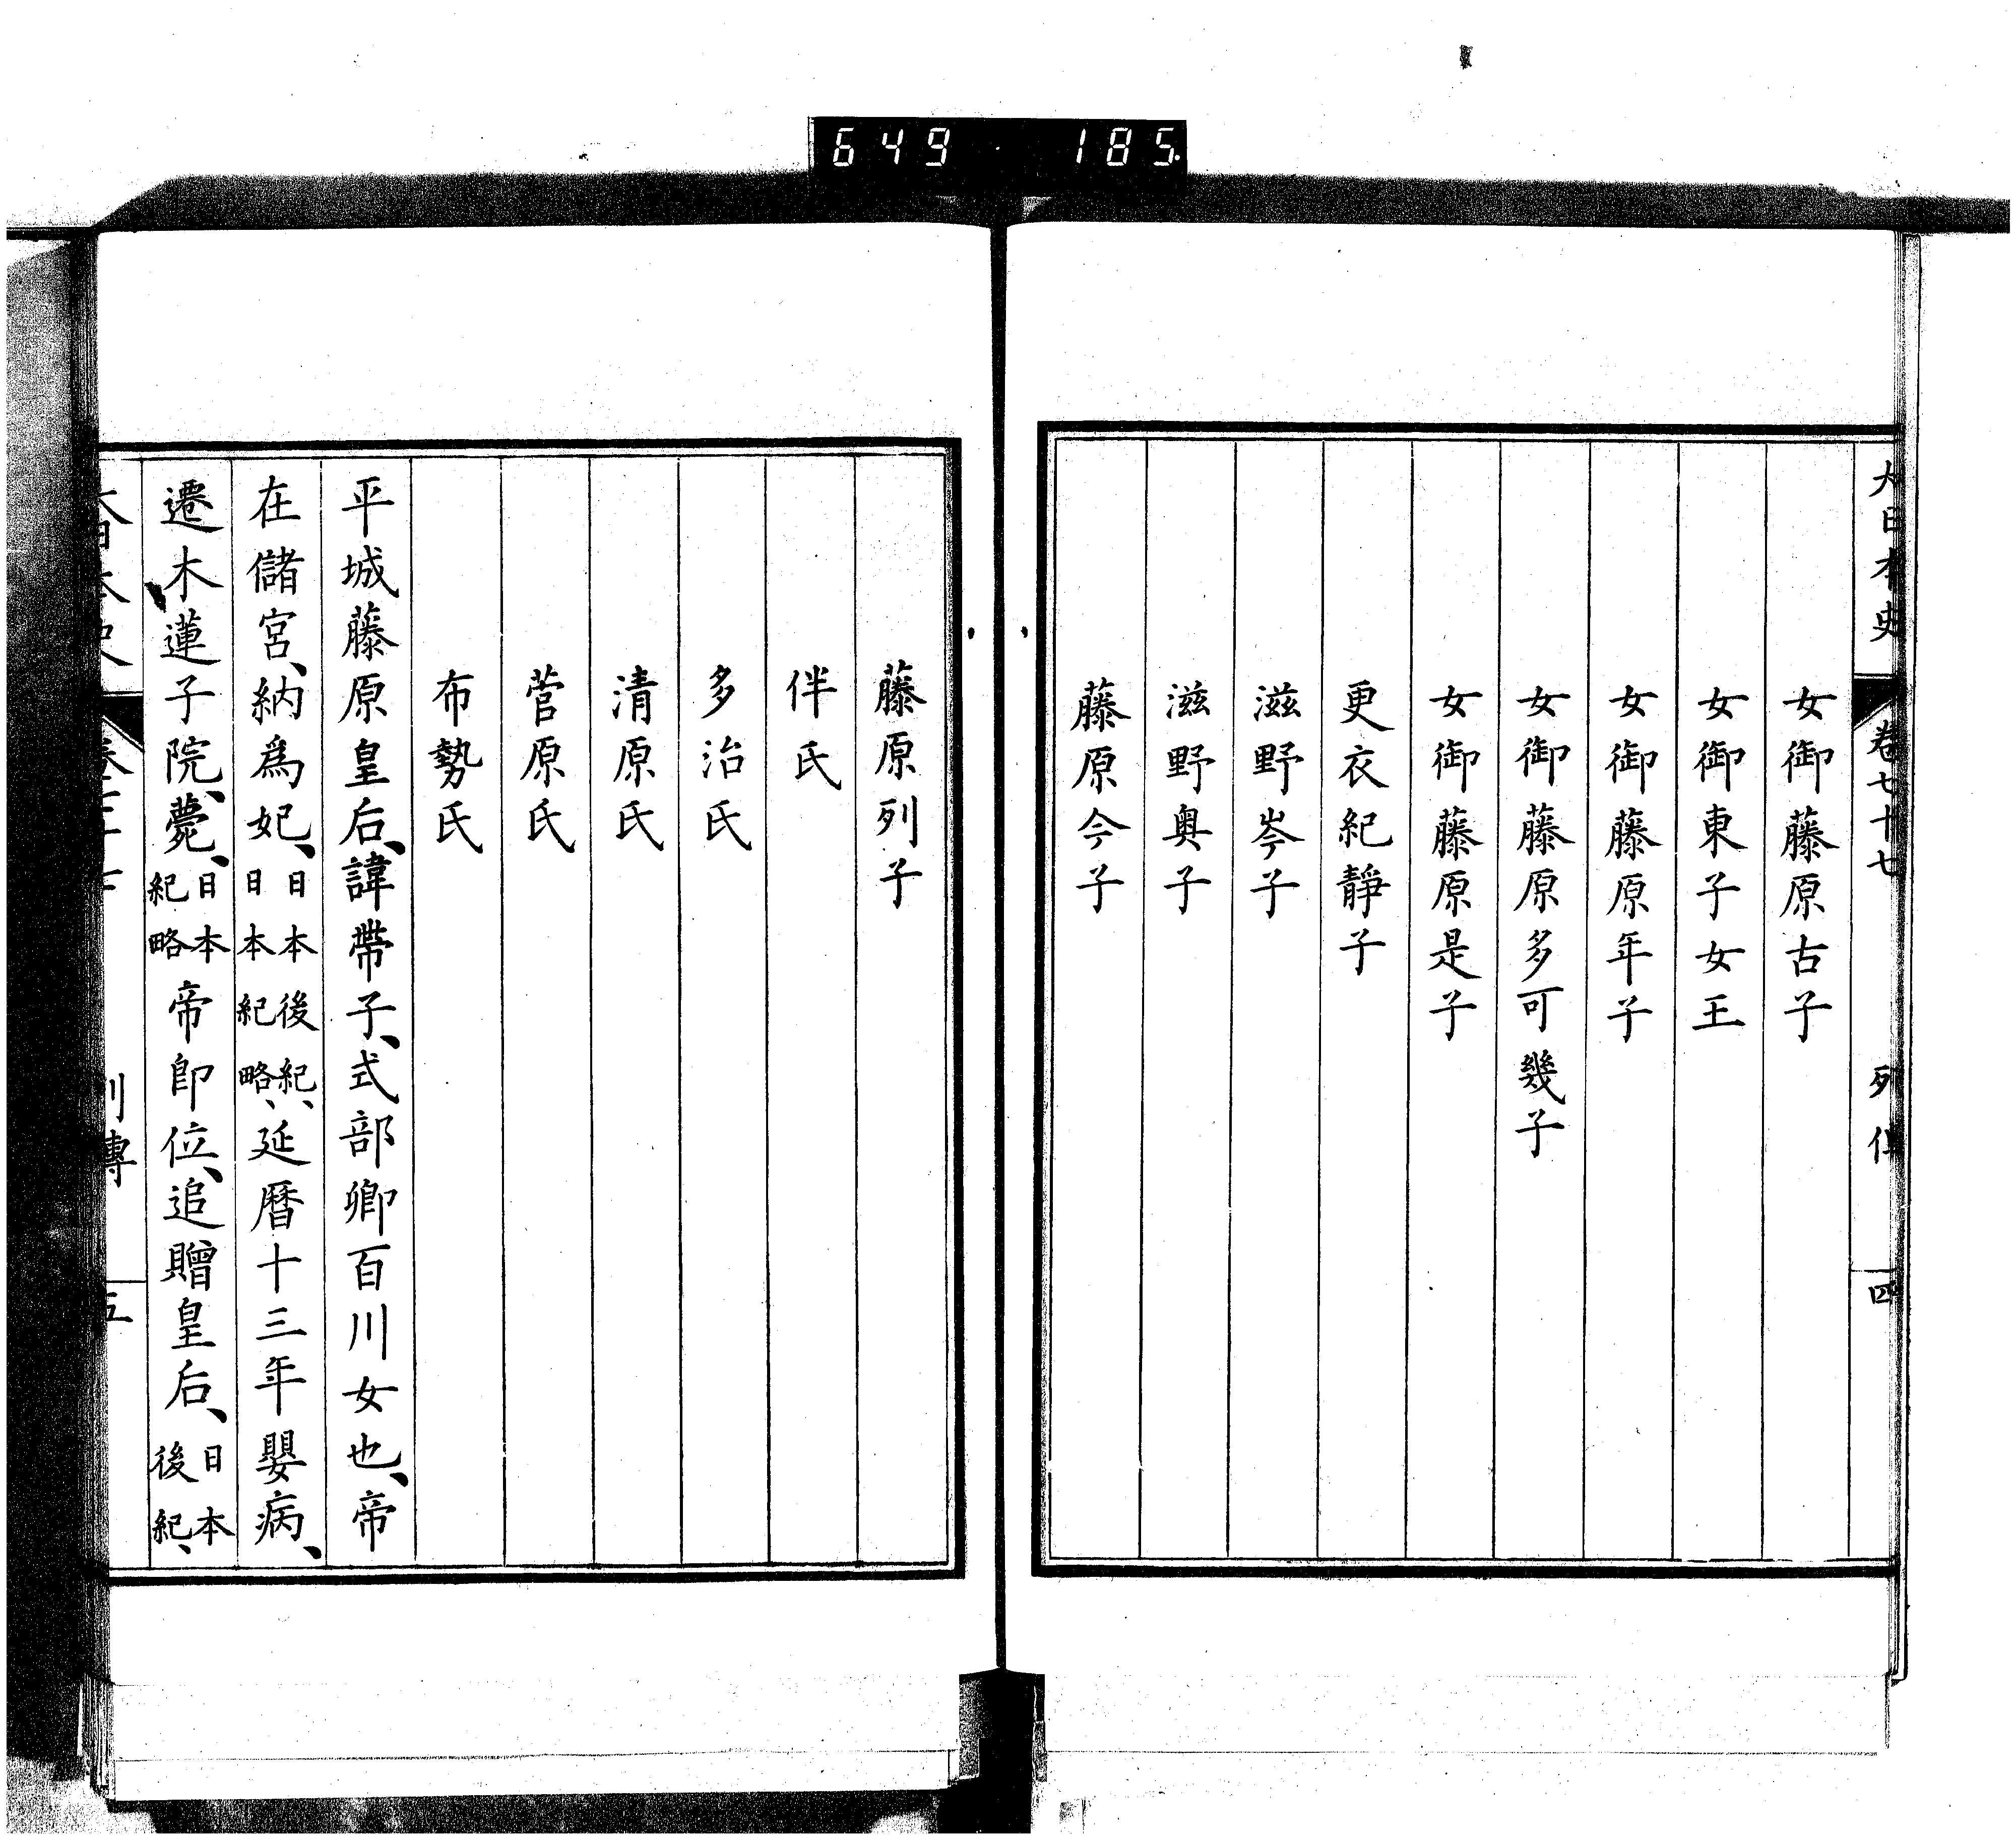 649 185.
大日本史 卷七十七 列傳 四
女御藤原古子
女御東子女王
女御藤原年子
女御藤原多可幾子
女御藤原是子
更衣紀靜子
滋野岑子
滋野奥子
藤原今子
藤原列子
伴氏
多治氏
清原氏
菅原氏
布勢氏
平城藤原皇后、諱帶子、式部卿百川女也、帝
在儲宮、納爲妃、日本後紀、日本紀略、延曆十三年嬰病、
遷木蓮子院、薨、日本紀略帝卽位、追贈皇后、日本後紀、
大日本史 卷七十七 列傳 五